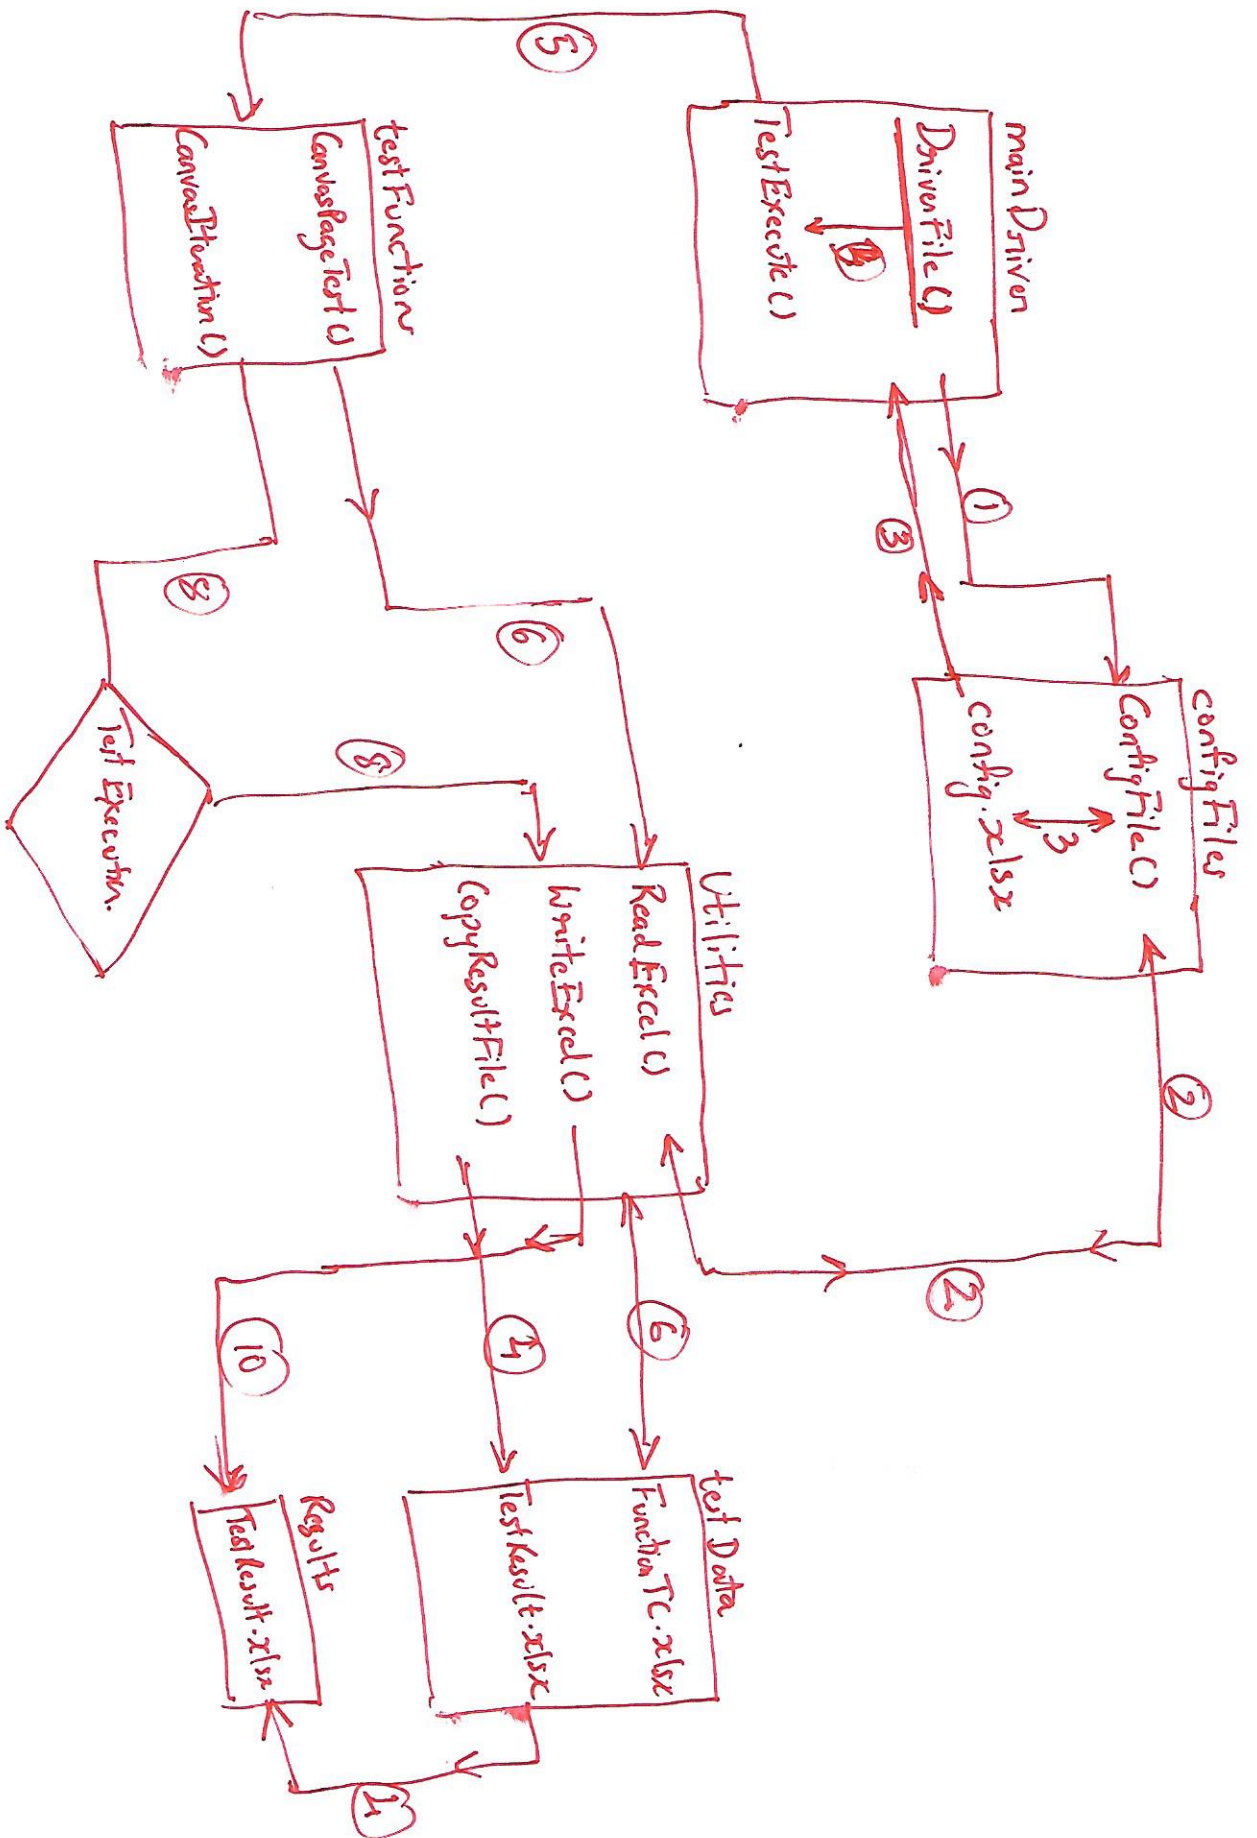 mainDriver
DriverFile()
TestExecute()
1
3
configFiles
ConfigFile()
3
config.xlsx
2
2
5
testFunction
CanvasPageTest()
CanvasIteration()
6
8
8
Test Execution.
Utilities
ReadExcel()
WriteExcel()
CopyResultFile()
6
10
testData
FunctionTC.xlsx
TestResult.xlsx
Results
TestResult.xlsx